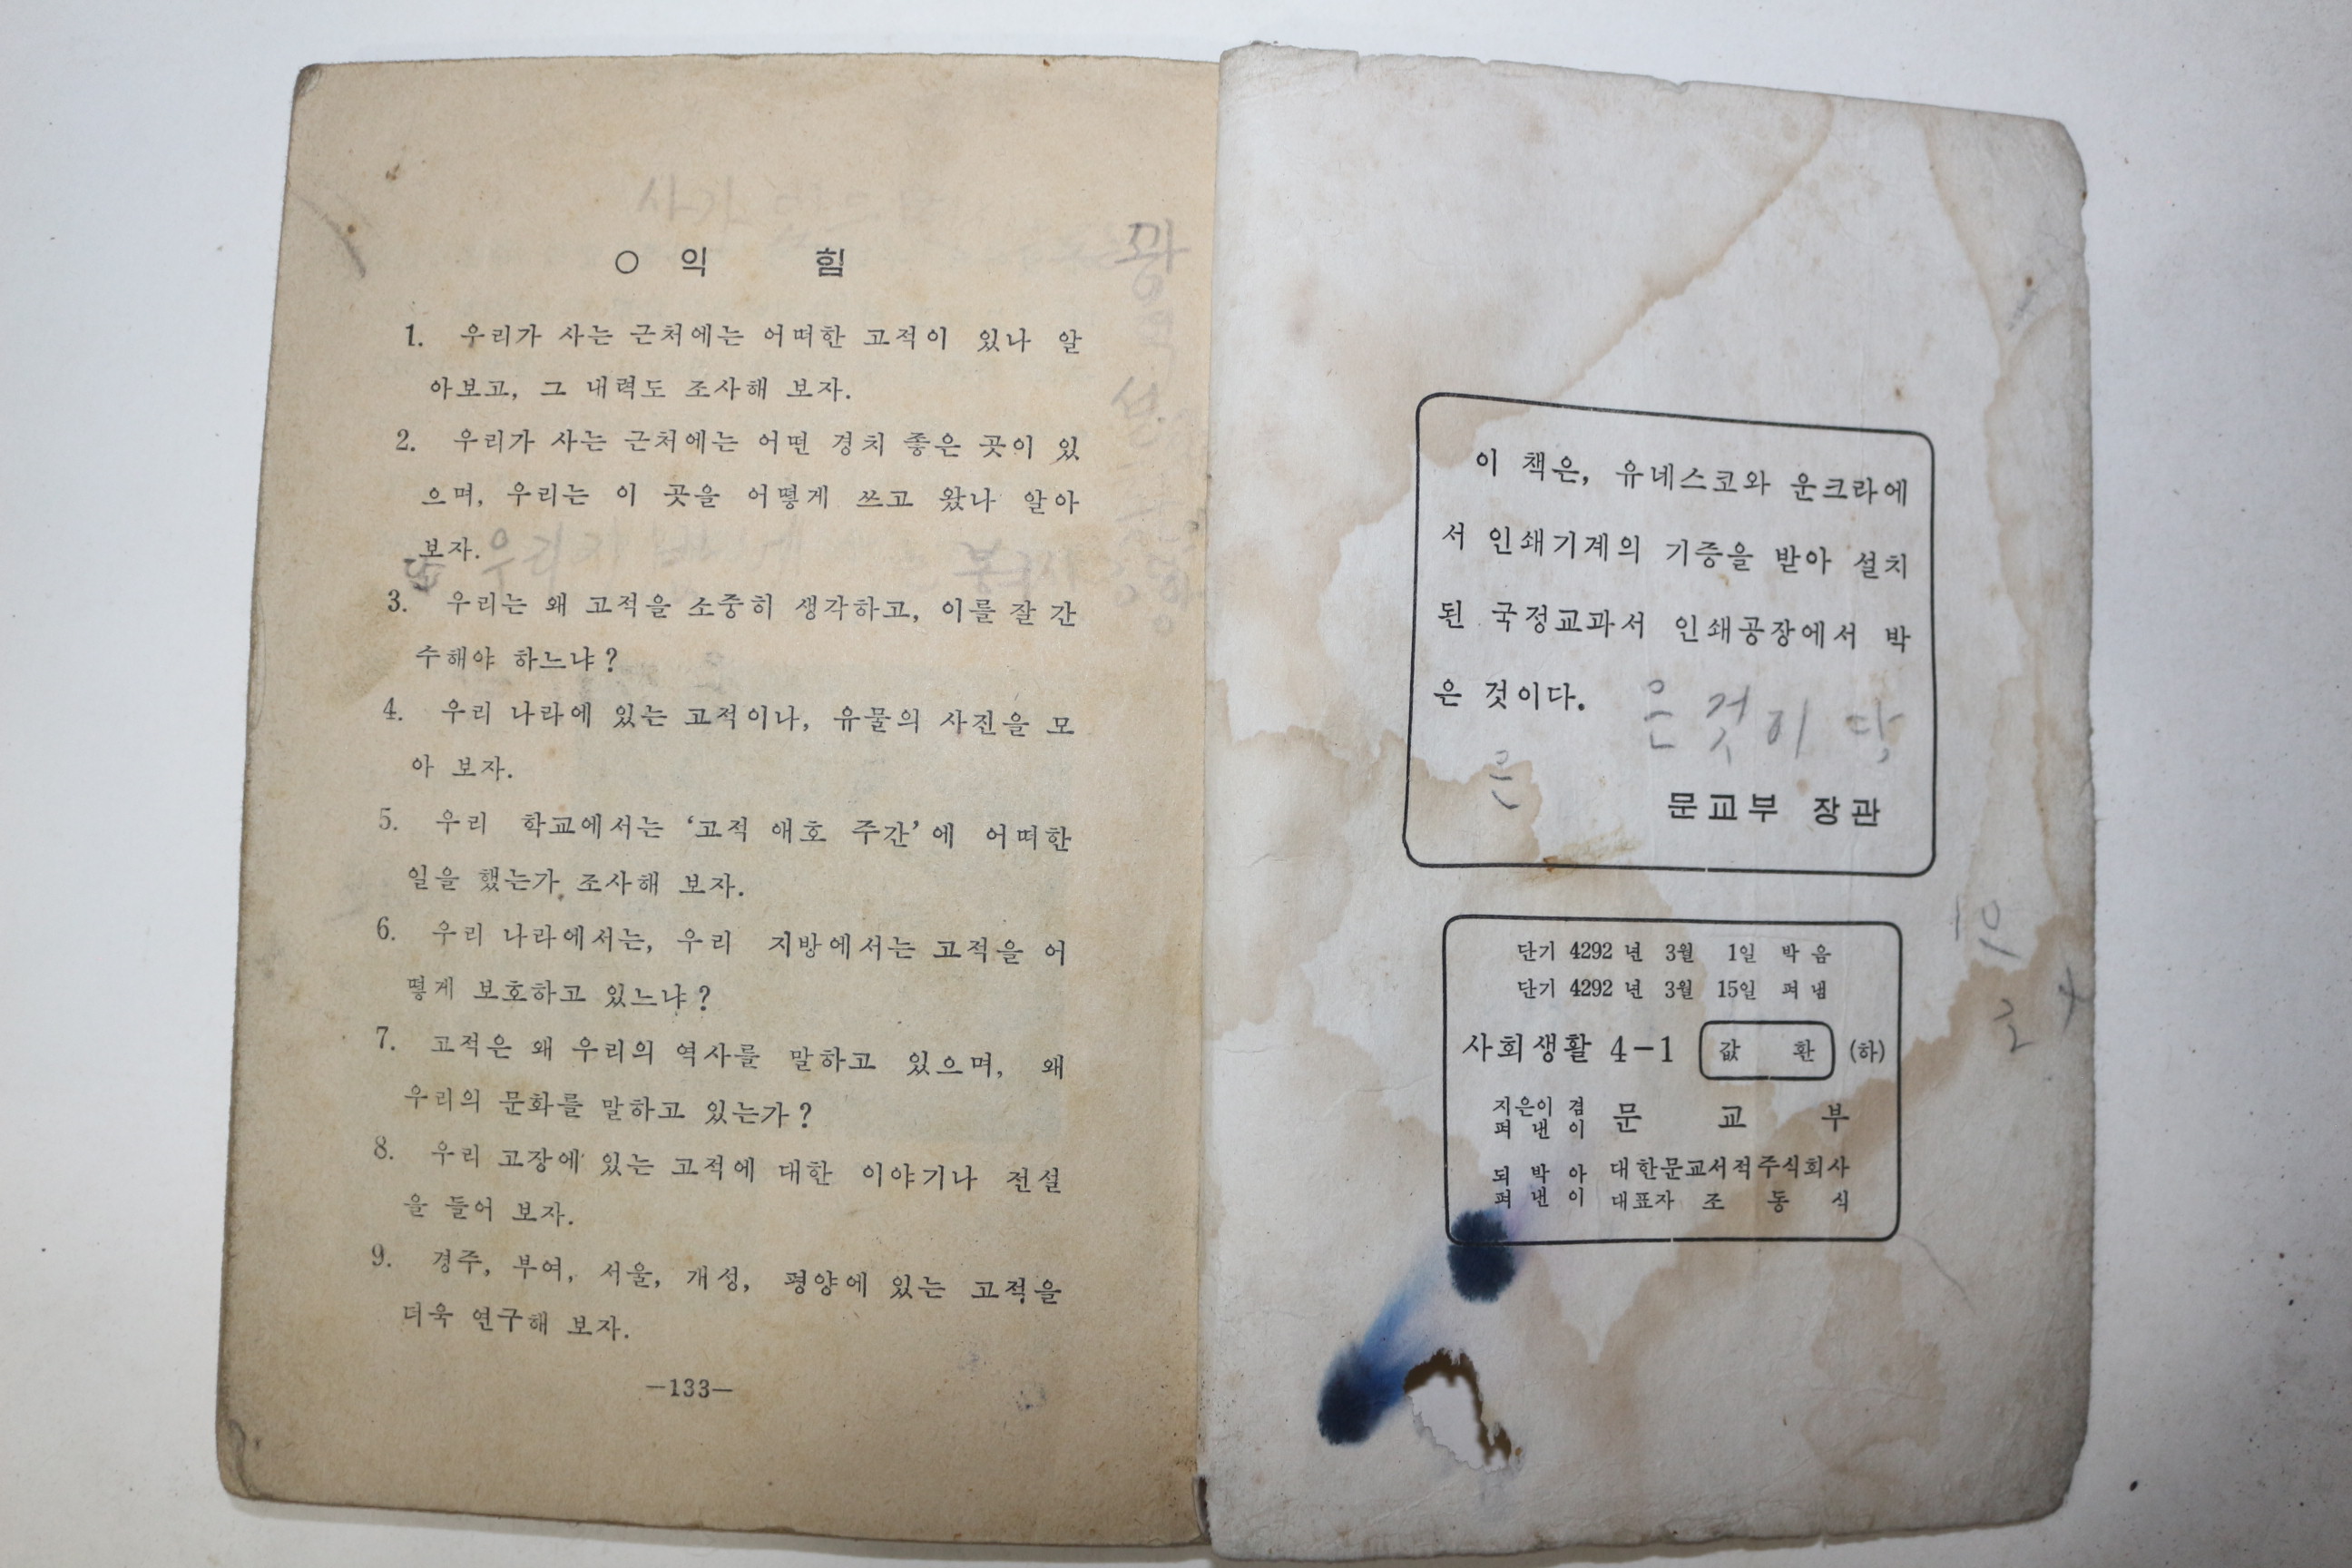 ○ 익 힘
1. 우리가 사는 근처에는 어떠한 고적이 있나 알
아보고, 그 내력도 조사해 보자.
2. 우리가 사는 근처에는 어떤 경치 좋은 곳이 있
으며, 우리는 이 곳을 어떻게 쓰고 왔나 알아
보자.
3. 우리는 왜 고적을 소중히 생각하고, 이를 잘 간
수해야 하느냐?
4. 우리 나라에 있는 고적이나, 유물의 사진을 모
아 보자.
5. 우리 학교에서는 ‘고적 애호 주간’에 어떠한
일을 했는가 조사해 보자.
6. 우리 나라에서는, 우리 지방에서는 고적을 어
떻게 보호하고 있느냐?
7. 고적은 왜 우리의 역사를 말하고 있으며, 왜
우리의 문화를 말하고 있는가?
8. 우리 고장에 있는 고적에 대한 이야기나 전설
을 들어 보자.
9. 경주, 부여, 서울, 개성, 평양에 있는 고적을
더욱 연구해 보자.
—133—
이 책은, 유네스코와 운크라에
서 인쇄기계의 기증을 받아 설치
된 국정교과서 인쇄공장에서 박
은 것이다. 은것이다
은
문교부 장관
단기 4292 년 3월 1일 박음
단기 4292 년 3월 15일 펴냄
사회생활 4-1 값 환 (하)
지은이 겸
펴 낸 이 문 교 부
되 박 아 대한문교서적주식회사
펴 낸 이 대표자 조 동 식